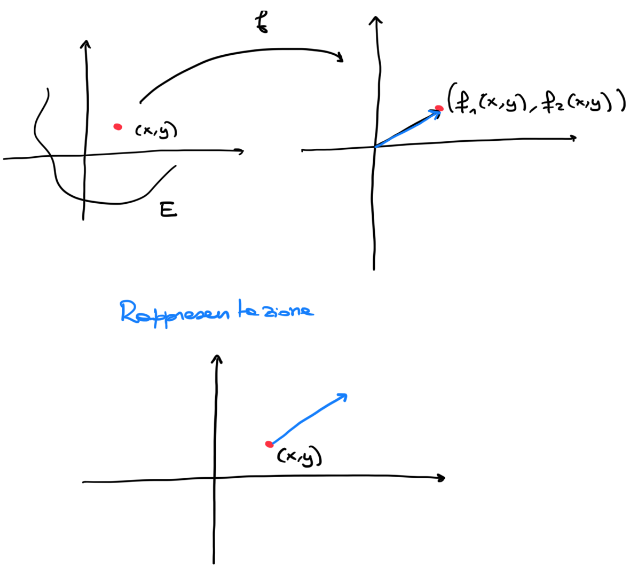 f
(x,y)
(f₁(x,y), f₂(x,y))
E
Rappresentazione
(x,y)